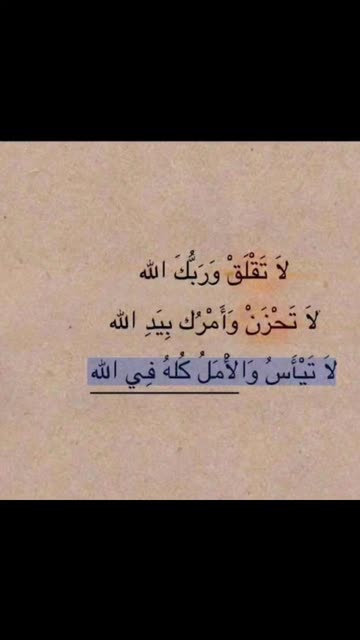 لاَ تَقْلَقْ وَرَبُّكَ الله
لاَ تَحْزَنْ وَأَمْرُك بِيَدِ الله
لاَ تَيْأَسُ وَالأْمَلُ كُلهُ فِي الله